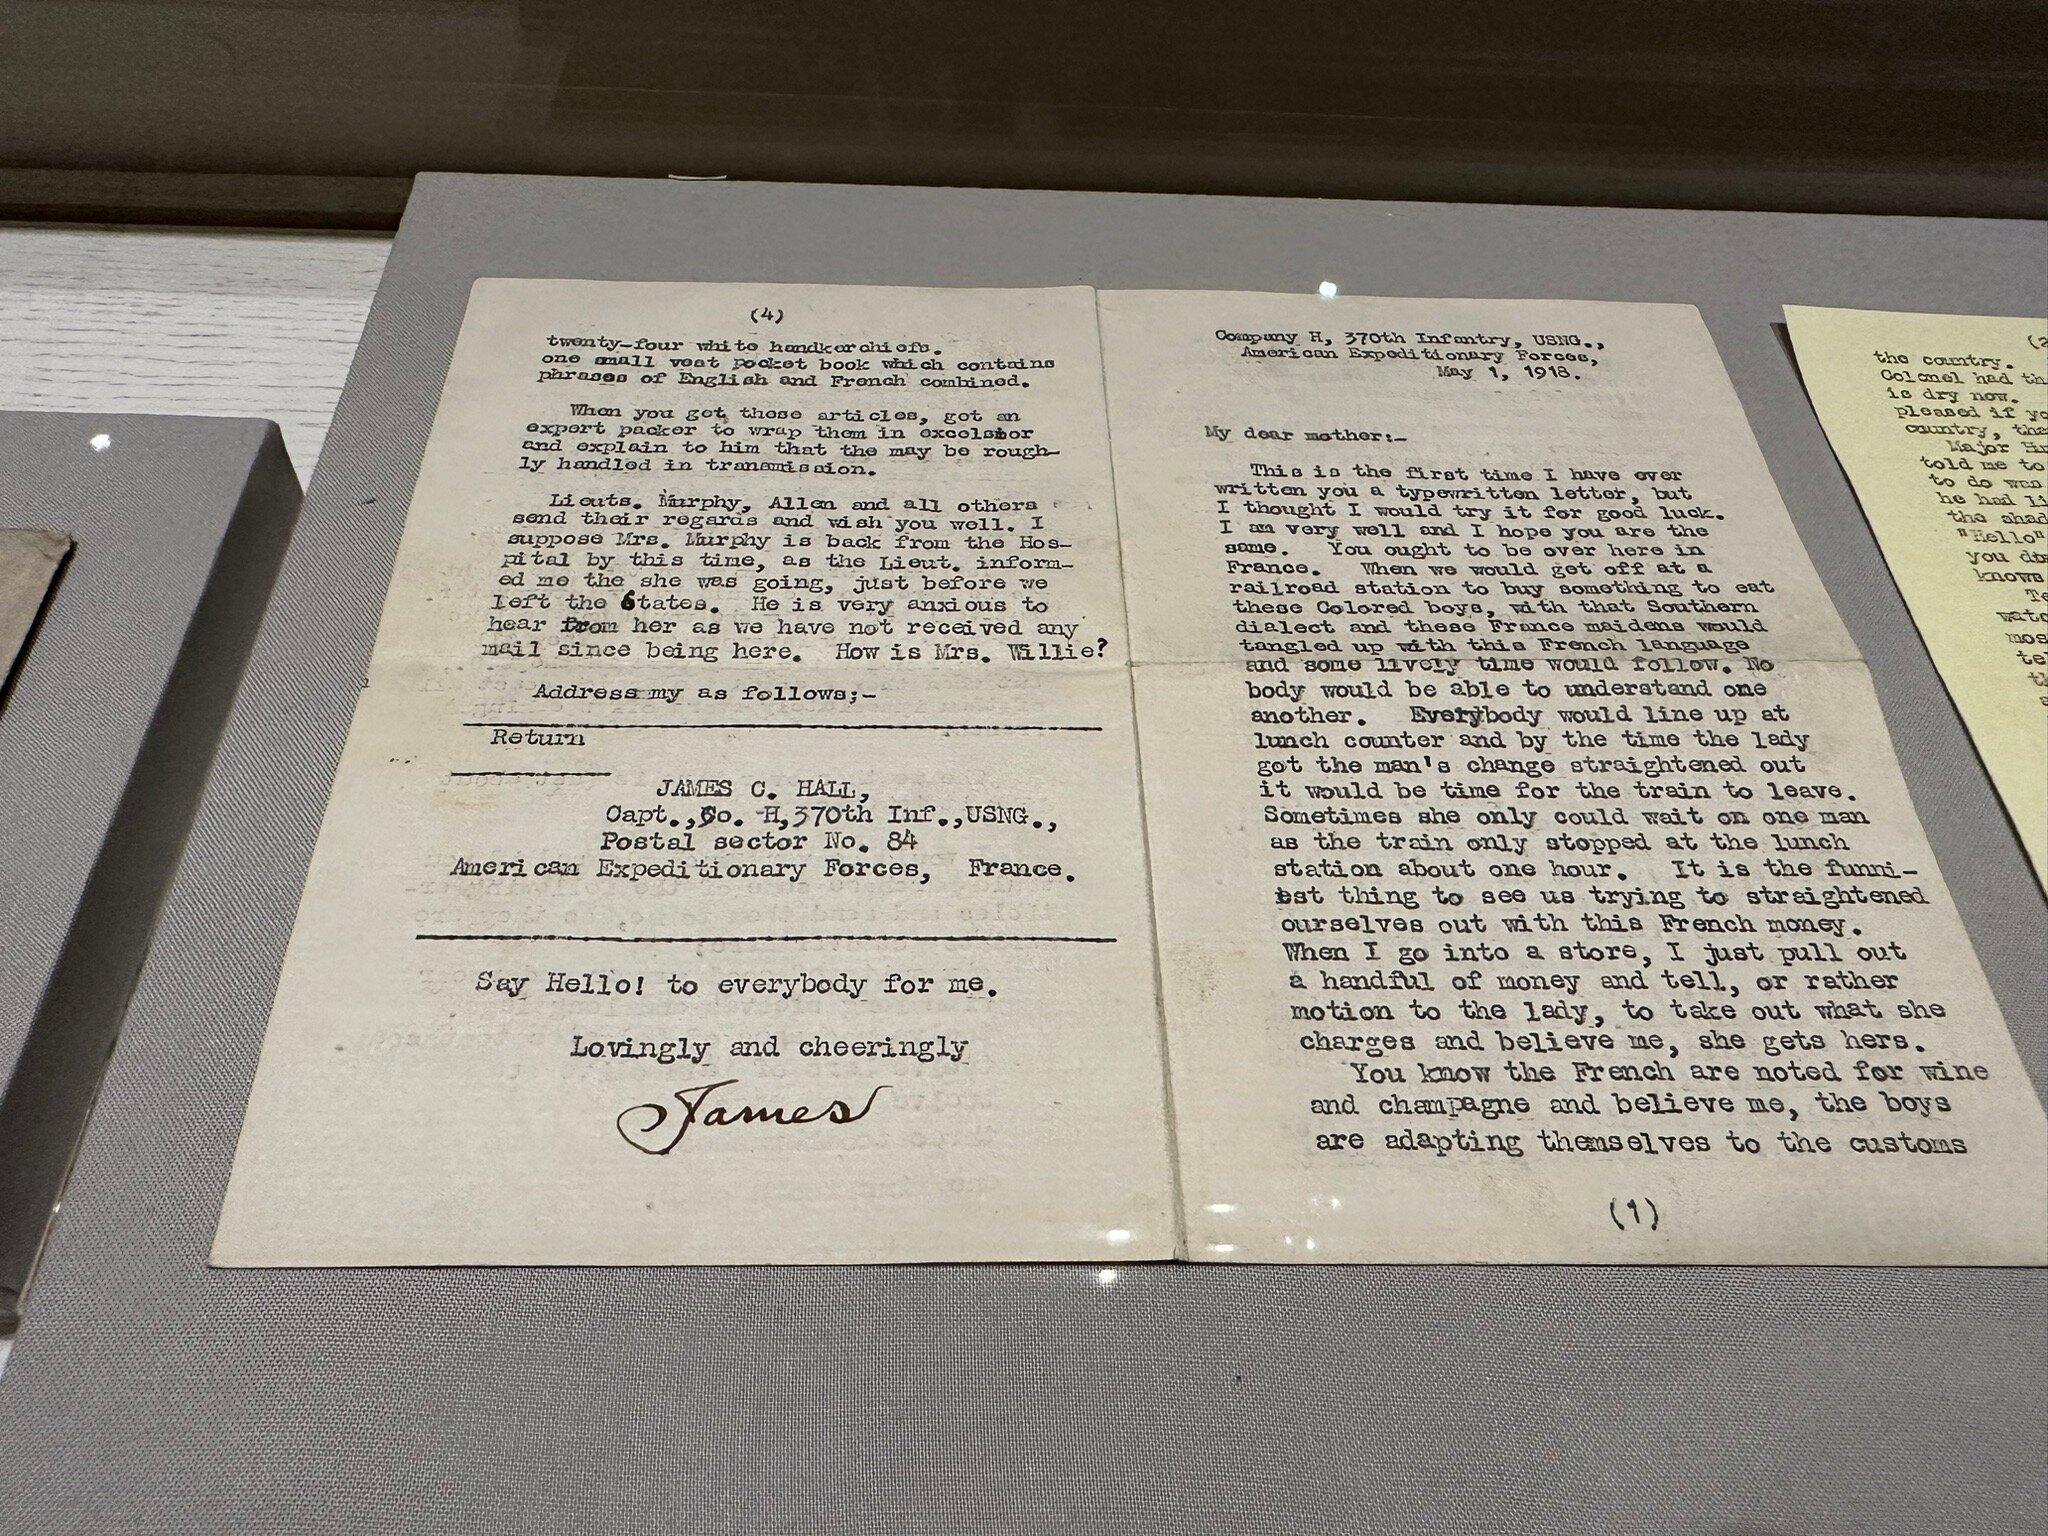 (4)
twenty-four white handkerchiefs.
one small vest pocket book which contains
phrases of English and French combined.
When you get these articles, got an
expert packer to wrap them in excelsior
and explain to him that the may be rough-
ly handled in transmission.
Lieuts. Murphy, Allen and all others
send their regards and wish you well. I
suppose Mrs. Murphy is back from the Hos-
pital by this time, as the Lieut. inform-
ed me the she was going, just before we
left the States. He is very anxious to
hear from her as we have not received any
mail since being here. How is Mrs. Willie?
Address my as follows;-
Return
JAMES C. HALL,
Capt.,Co. H,370th Inf.,USNG.,
Postal sector No. 84
American Expeditionary Forces, France.
Say Hello! to everybody for me.
Lovingly and cheeringly
James
Company H, 370th Infantry, USNG.,
American Expeditionary Forces,
May 1, 1918.
My dear mother:-
This is the first time I have ever
written you a typewritten letter, but
I thought I would try it for good luck.
I am very well and I hope you are the
same. You ought to be over here in
France. When we would get off at a
railroad station to buy something to eat
these Colored boys, with that Southern
dialect and these France maidens would
tangled up with this French language
and some lively time would follow. No
body would be able to understand one
another. Everybody would line up at
lunch counter and by the time the lady
got the man's change straightened out
it would be time for the train to leave.
Sometimes she only could wait on one man
as the train only stopped at the lunch
station about one hour. It is the funni-
est thing to see us trying to straightened
ourselves out with this French money.
When I go into a store, I just pull out
a handful of money and tell, or rather
motion to the lady, to take out what she
charges and believe me, she gets hers.
You know the French are noted for wine
and champagne and believe me, the boys
are adapting themselves to the customs
(1)
(2
the country.
Colonel had th
is dry now.
pleased if yo
country, tha
Major
told me to
to do was
he had li
the shad
"Hello"
you
knows
Te
watc
mos
te